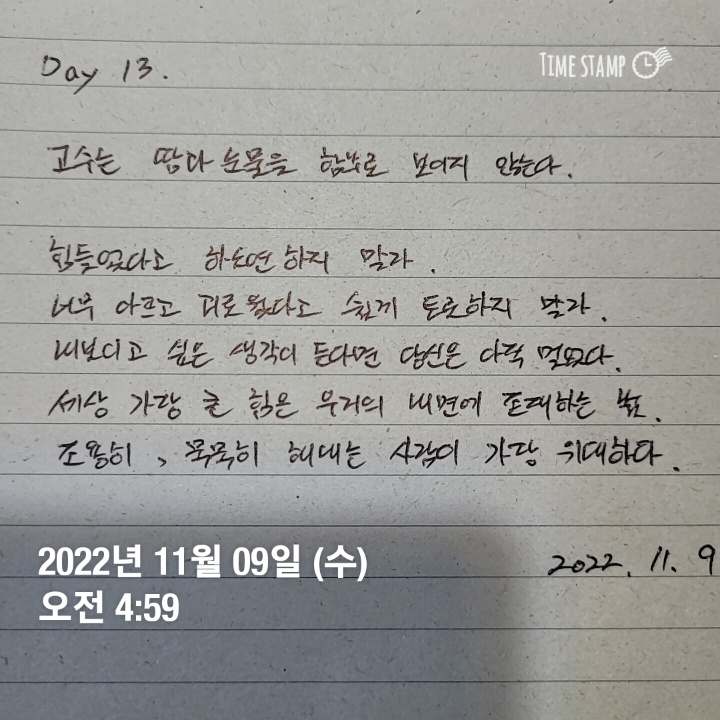 Day 13.
TIME STAMP
고수는 땀과 눈물을 함부로 보이지 않는다.
힘들었다고 하소연하지 말라.
너무 아프고 괴로웠다고 쉽게 토로하지 말라.
내보이고 싶은 생각이 든다면 당신은 아직 멀었다.
세상 가장 큰 힘은 우리의 내면에 존재하는 법.
조용히, 묵묵히 해내는 사람이 가장 위대하다.
2022. 11. 9
2022년 11월 09일 (수)
오전 4:59